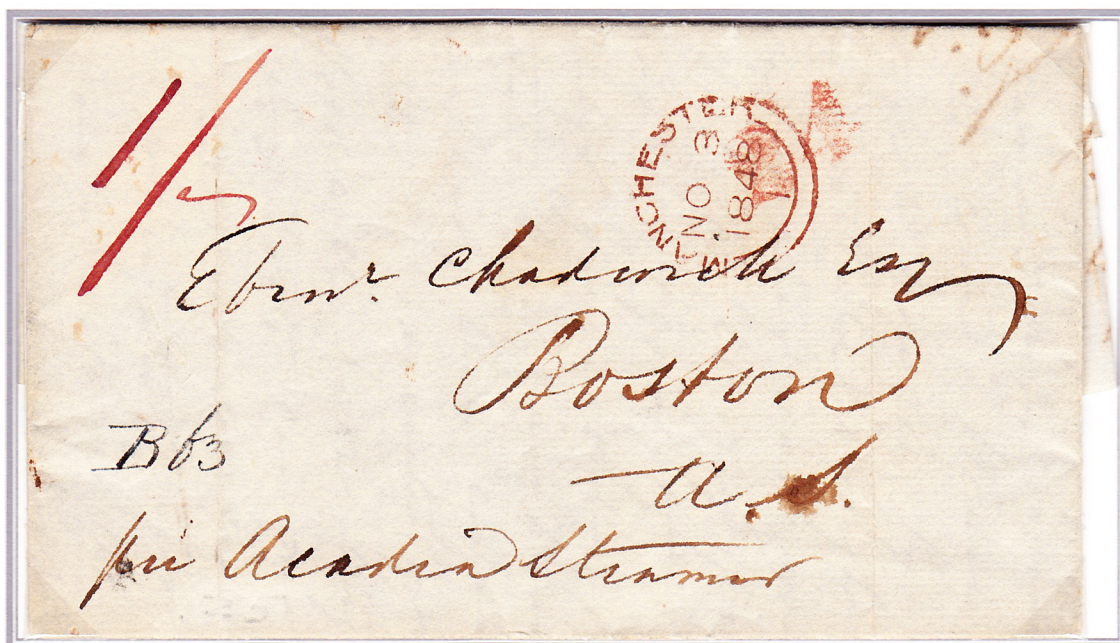 1/-
MANCHESTER
NO 3
1848
Ebenr. Chadwick Esq
Boston
U.S.
per Acadia Steamer